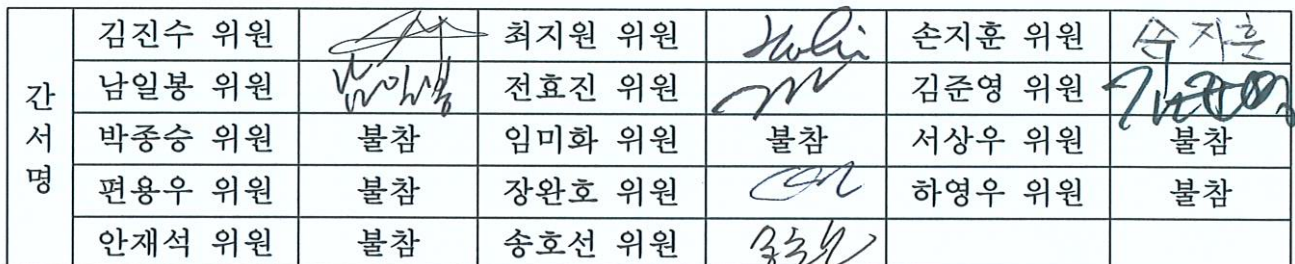 간서명
김진수 위원 최지원 위원 손지훈 위원 손지훈
남일봉 위원 남일봉 전효진 위원 김준영 위원 김준영
박종승 위원 불참 임미화 위원 불참 서상우 위원 불참
편용우 위원 불참 장완호 위원 하영우 위원 불참
안재석 위원 불참 송호선 위원